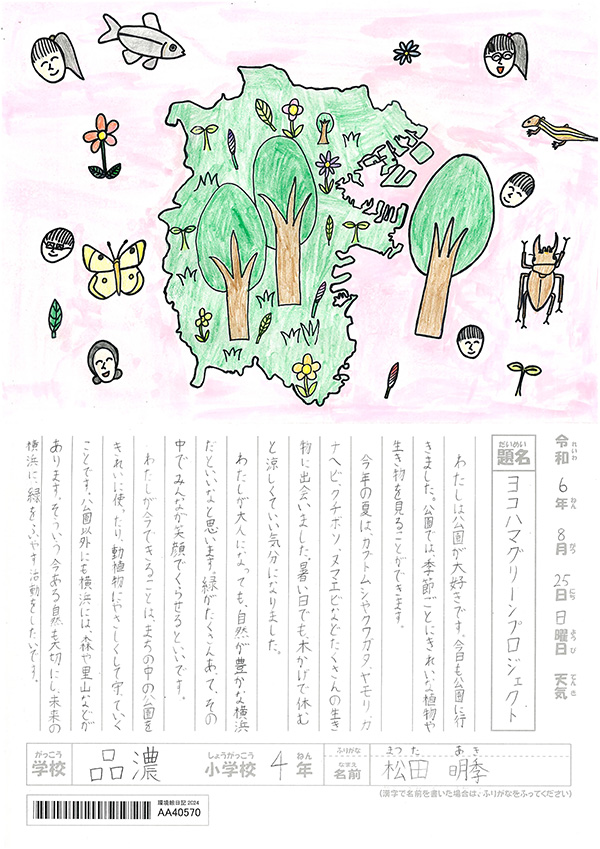 令和れいわ 6年ねん 8月がつ 25日にち 日曜日ようび 天気てんき
だいめい
題名 ヨコハマグリーンプロジェクト
わたしは公園が大好きです。今日も公園に行
きました。公園では、季節ごとにきれいな植物や
生き物を見ることができます。
今年の夏は、カブトムシやクワガタ、ヤモリ、カ
ナヘビ、クチボソ、ヌマエビなどたくさんの生き
物に出会いました。暑い日でも、木かげで休む
と涼しくていい気分になりました。
わたしが大人になっても、自然が豊かな横浜
だといいなと思います。緑がたくさんあって、その
中でみんなが笑顔でくらせるといいです。
わたしが今できることは、まちの中の公園を
きれいに使ったり、動植物にやさしくして守っていく
ことです。公園以外にも横浜には、森や里山などが
あります。そういう今ある自然も大切にし、未来の
横浜に、緑をふやす活動をしたいです。
がっこう しょうがっこう ねん ふりがな まつだ あき
学校 品濃 小学校 4年 なまえ 名前 松田 明季
(漢字で名前を書いた場合は、ふりがなをふってください)
環境絵日記 2024
AA40570